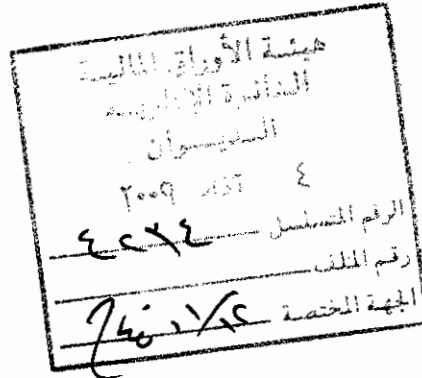 هيئة الأوراق المالية
الدائرة الإدارية
الديوان
٤ آذار ٢٠٠٩
الرقم المتسلسل
رقم الملف
الجهة المختصة